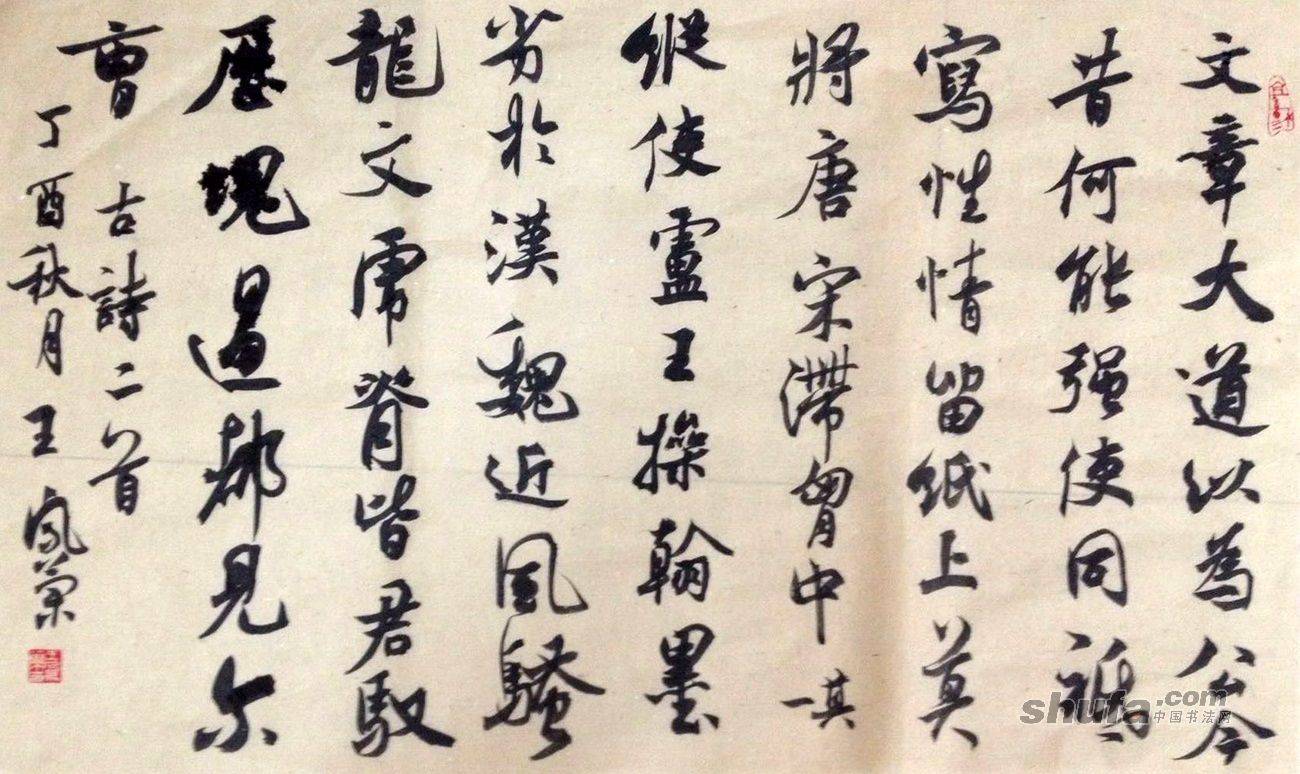 文章大道以為公今
昔何能强使同祇
寫性情留紙上莫
將唐宋滯胷中 其一
縱使盧王操翰墨
劣於漢魏近風騷
龍文虎脊皆君馭
歷塊過都見尔
曹 古詩二首
丁酉秋月王鳳
shufa.com
中国书法网